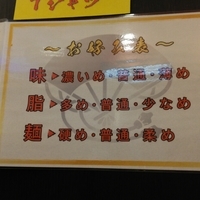 ～お好み表～
味▶濃いめ・普通・薄め
脂▶多め・普通・少なめ
麺▶硬め・普通・柔め